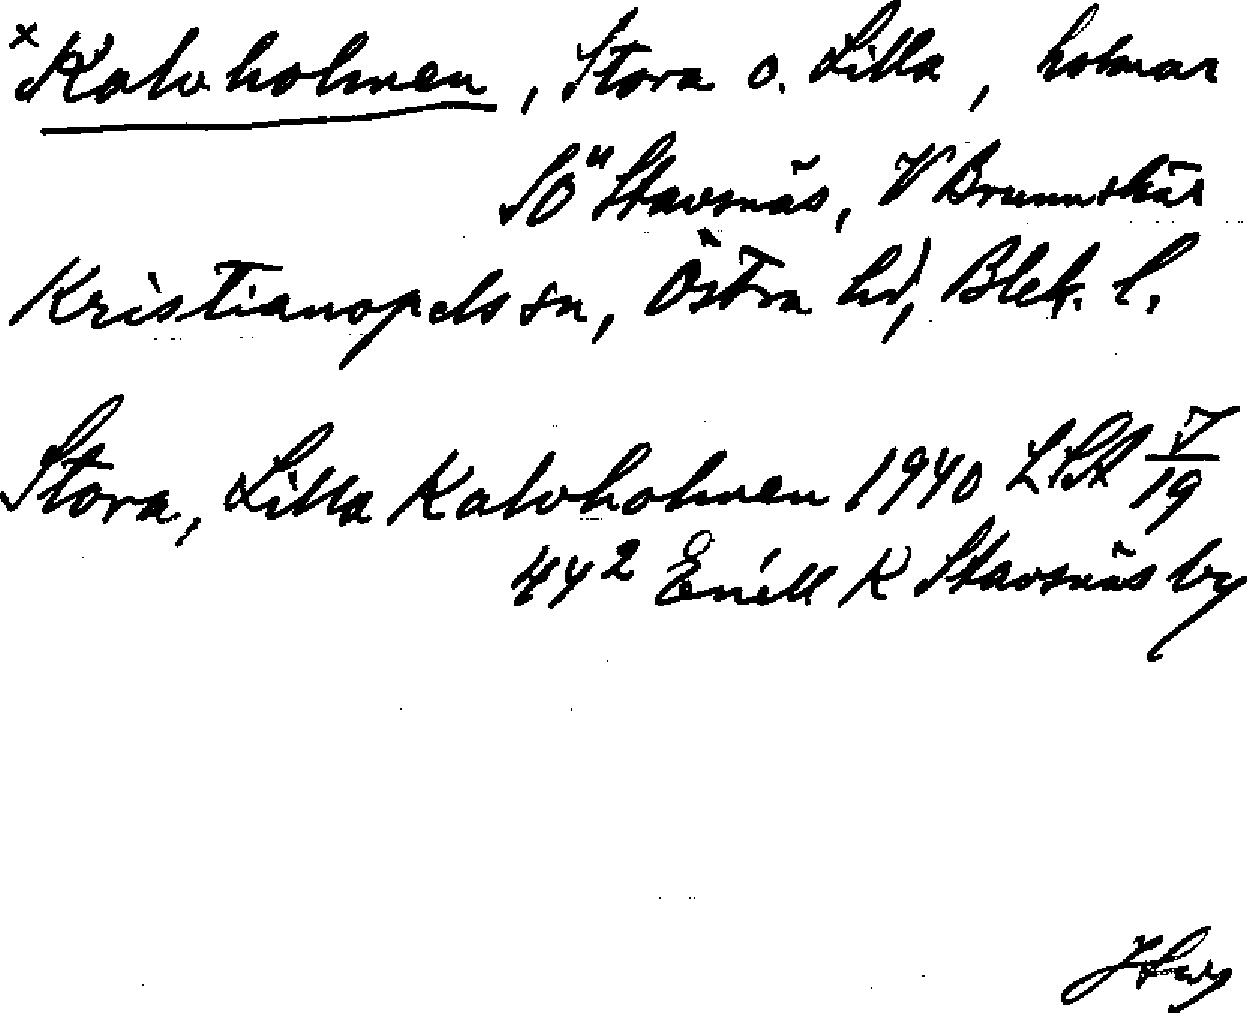 × Kalvholmen, Stora o. Lilla, holmar
SÖ Stavsnäs, V Brunnskär
Kristianopels sn, Östra hd, Blek. l.
Stora, Lilla Kalvholmen 1940
442 Enéll K Stavsnäs by